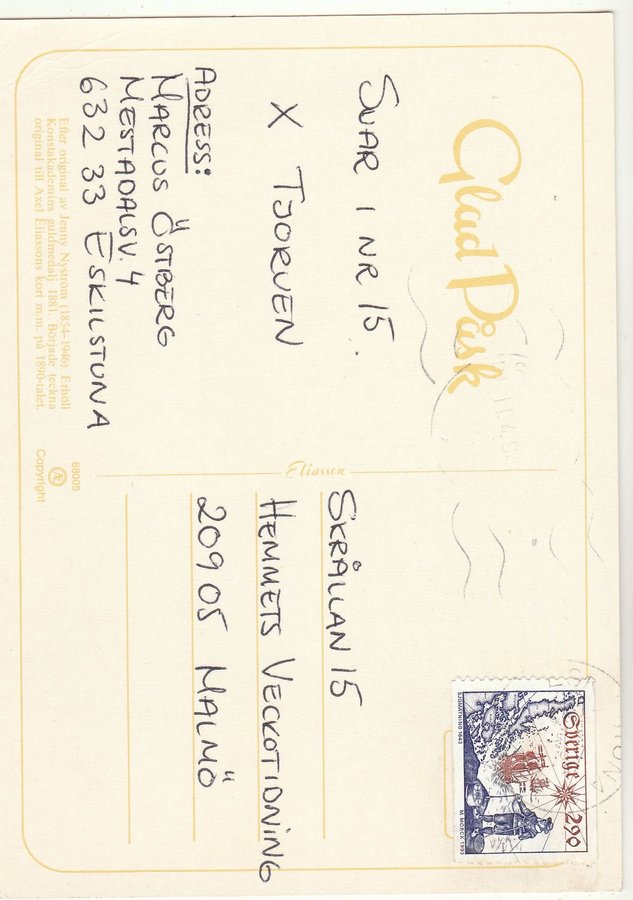 Glad Påsk
SVAR I NR 15.
X TJORVEN
ADRESS:
MARCUS ÖSTBERG
MESTADALSV. 4
632 33 ESKILSTUNA
Efter original av Jenny Nyström (1854–1946). Erhöll
Konstakademins guldmedalj 1881. Började teckna
original till Axel Eliassons kort m.m. på 1890-talet.
Eliasson
68005
Æ
Copyright
SKRÅLLAN 15
HEMMETS VECKOTIDNING
20905 MALMÖ
Sverige 290
SJÖMÄTNING 1643
M. MÖRCK 1993